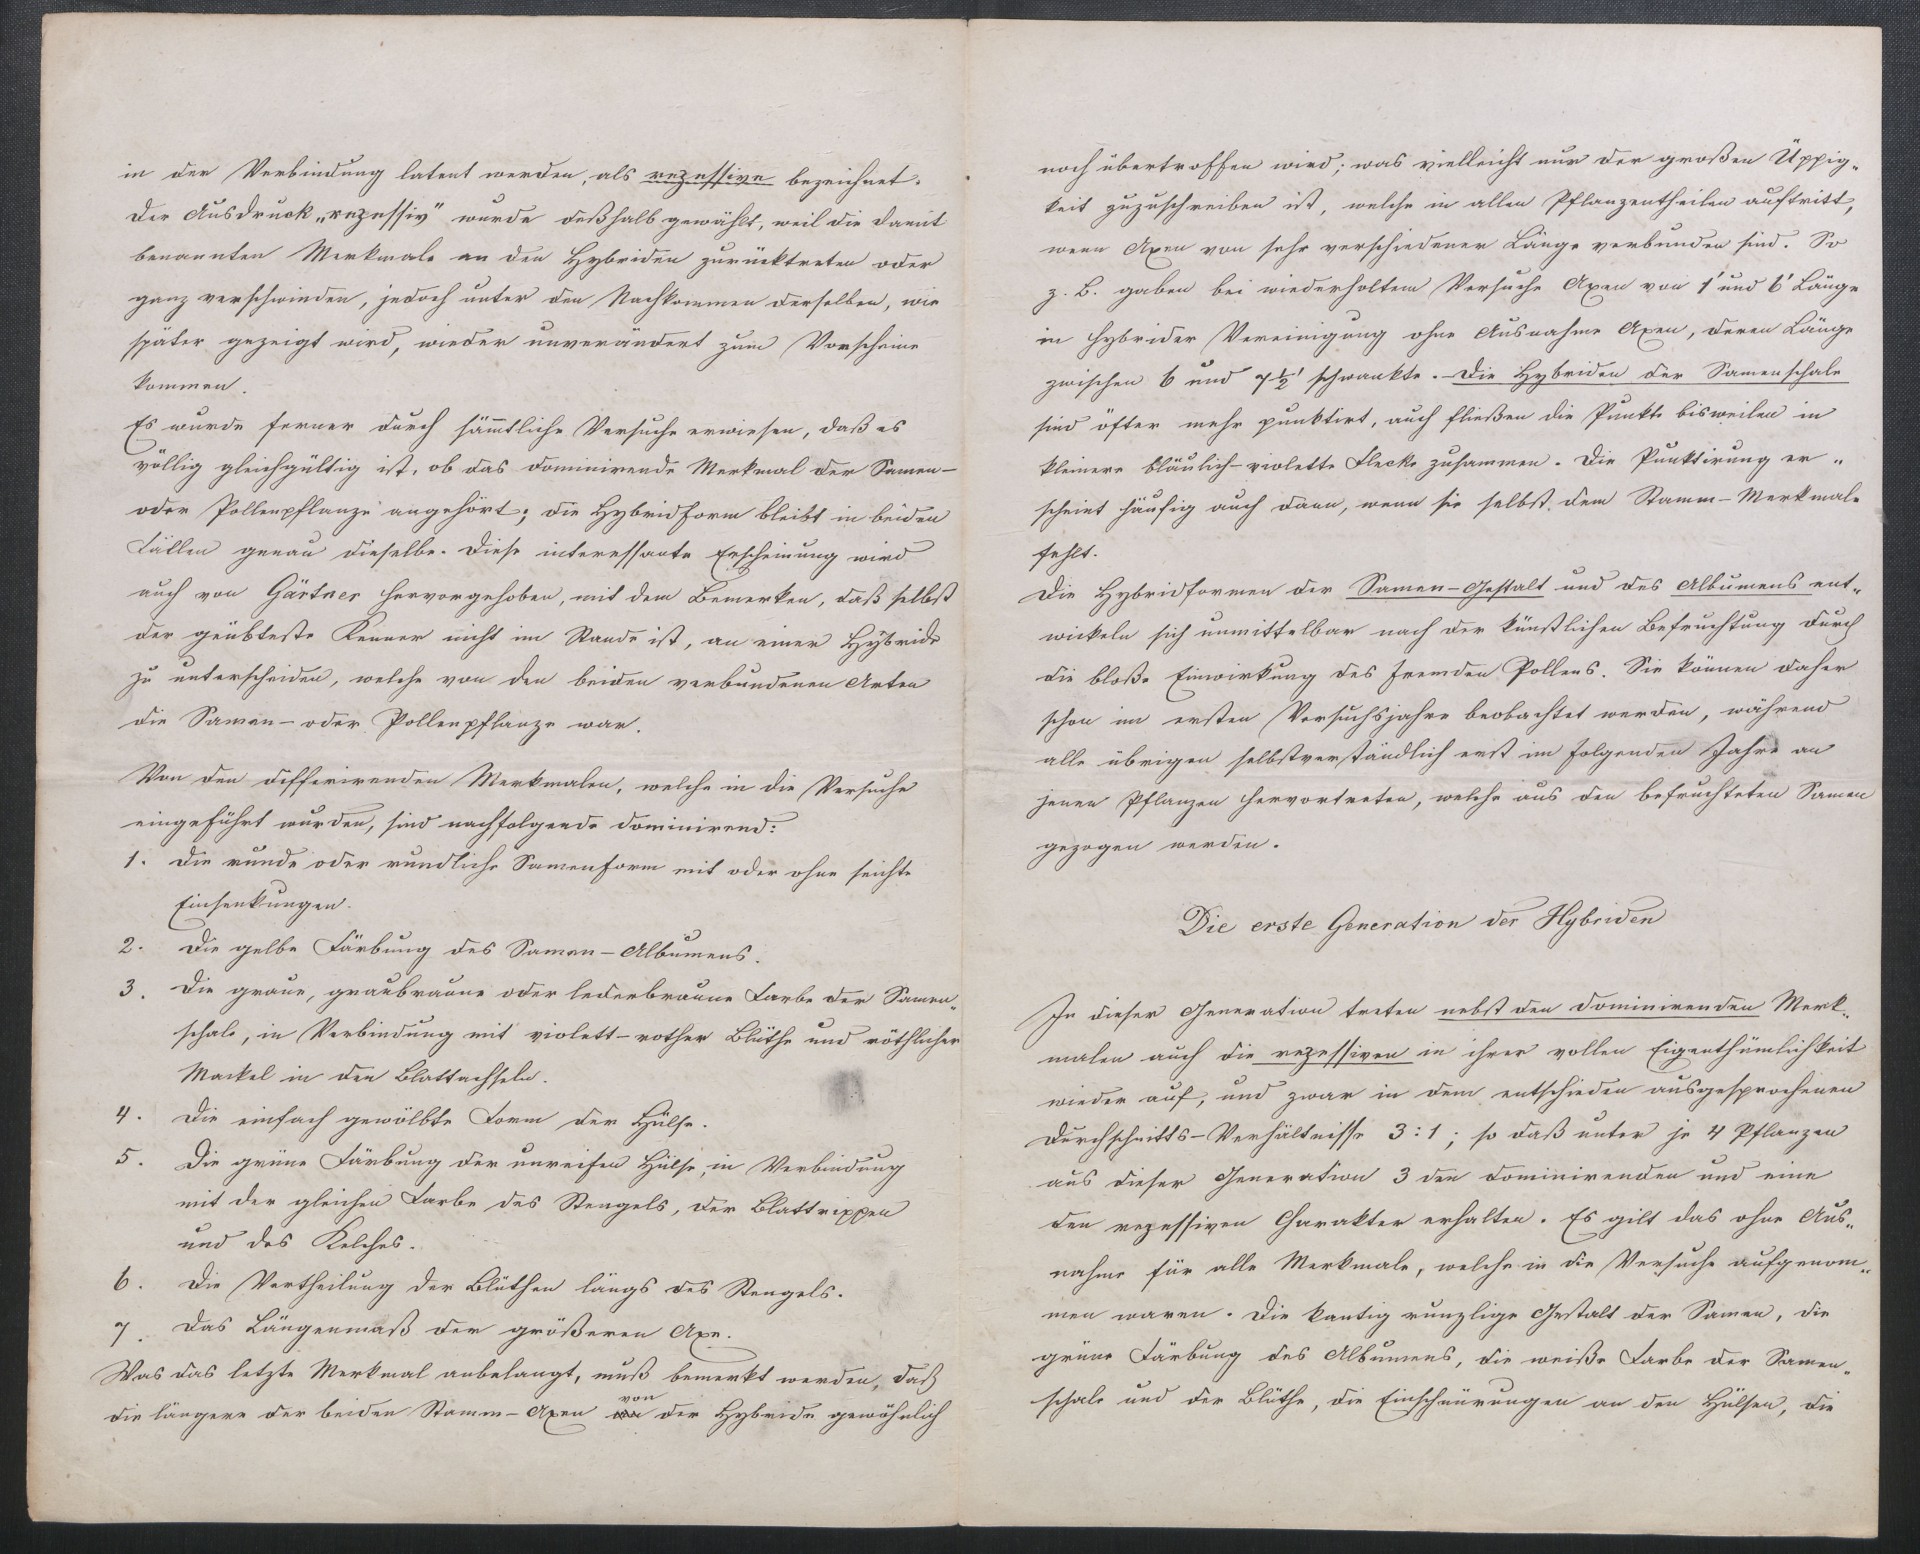 in der Verbindung latent werden, als rezessive bezeichnet.
Der Ausdruck „rezessiv" wurde deßhalb gewählt, weil die damit
benannten Merkmale an den Hybriden zurücktreten oder
ganz verschwinden, jedoch unter den Nachkommen derselben, wie
später gezeigt wird, wieder unverändert zum Vorscheine
kommen.
Es wurde ferner durch sämmtliche Versuche erwiesen, daß es
völlig gleichgültig ist, ob das dominirende Merkmal der Samen-
oder Pollenpflanze angehört; die Hybridform bleibt in beiden
Fällen genau dieselbe. Diese interessante Erscheinung wird
auch von Gärtner hervorgehoben, mit dem Bemerken, daß selbst
der geübteste Kenner nicht im Stande ist, an einer Hybride
zu unterscheiden, welche von den beiden verbundenen Arten
die Samen- oder Pollenpflanze war.
Von den differirenden Merkmalen, welche in die Versuche
eingeführt wurden, sind nachfolgende dominirend:
1. Die runde oder rundliche Samenform mit oder ohne seichte
Einsenkungen.
2. Die gelbe Färbung des Samen-Albumens.
3. Die graue, graubraune oder lederbraune Farbe der Samen„
schale, in Verbindung mit violett-rother Blüthe und röthlicher
Mackel in den Blattachseln.
4. Die einfach gewölbte Form der Hülse.
5. Die grüne Färbung der unreifen Hülse, in Verbindung
mit der gleichen Farbe des Stengels, der Blattrippen
und des Kelches.
6. Die Vertheilung der Blüthen längs des Stengels.
7. Das Längenmaß der größeren Axe.
Was das letzte Merkmal anbelangt, muß bemerkt werden, daß
die längere der beiden Stamm-Axen von der Hybride gewöhnlich
noch übertroffen wird; was vielleicht nur der großen Üppig„
keit zuzuschreiben ist, welche in allen Pflanzentheilen auftritt,
wenn Axen von sehr verschiedener Länge verbunden sind. So
z. B. gaben bei wiederholtem Versuche Axen von 1' und 6' Länge
in hybrider Vereinigung ohne Ausnahme Axen, deren Länge
zwischen 6 und 7½' schwankte. Die Hybriden der Samenschale
sind öfter mehr punktirt, auch fließen die Punkte bisweilen in
kleinere bläulich-violette Flecke zusammen. Die Punktirung er„
scheint häufig auch dann, wenn sie selbst dem Stamm-Merkmale
fehlt.
Die Hybridformen der Samen-Gestalt und des Albumens ent„
wickeln sich unmittelbar nach der künstlichen Befruchtung durch
die bloße Einwirkung des fremden Pollens. Sie können daher
schon im ersten Versuchsjahre beobachtet werden, während
alle übrigen selbstverständlich erst im folgenden Jahre an
jenen Pflanzen hervortreten, welche aus den befruchteten Samen
gezogen werden.
Die erste Generation der Hybriden
In dieser Generation treten nebst den dominirenden Merk„
malen auch die rezessiven in ihrer vollen Eigenthümlichkeit
wieder auf, und zwar in dem entschieden ausgesprochenen
Durchschnitts-Verhältnisse 3:1; so daß unter je 4 Pflanzen
aus dieser Generation 3 den dominirenden und eine
den rezessiven Charakter erhalten. Es gilt das ohne Aus„
nahme für alle Merkmale, welche in die Versuche aufgenom„
men waren. Die kantig runzlige Gestalt der Samen, die
grüne Färbung des Albumens, die weiße Farbe der Samen„
schale und der Blüthe, die Einschnürungen an den Hülsen, die